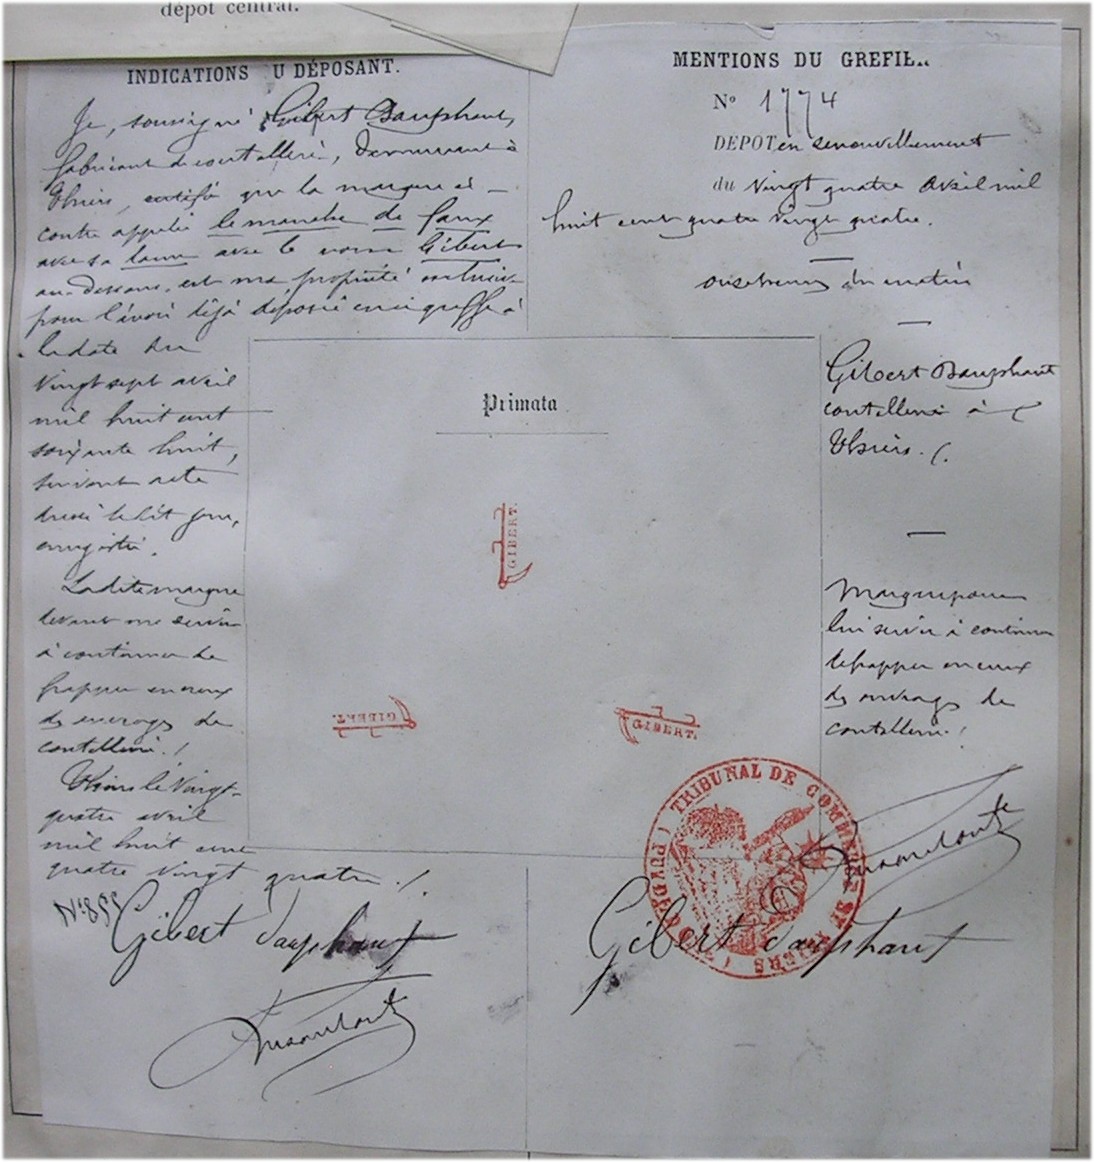 dépôt central.
INDICATIONS U DÉPOSANT.
Je, soussigné Gibert Dauphant,
fabricant de coutellerie, demeurant à
Thiers, certifie que la marque ci-
contre appelée le manche de faux
avec sa lame avec le nom Gibert
au-dessous, est ma propriété
pour l'avoir déjà déposée au greffe à
la date du
vingt sept avril
mil huit cent
soixante huit,
suivant acte
dressé ledit jour,
enregistré.
Ladite marque
devant me servir
à continuer de
frapper en creux
des ouvrages de
coutellerie./
Thiers le vingt-
quatre avril
mil huit cent
quatre vingt quatre./.
Gibert Dauphant
MENTIONS DU GREFIL..
N° 1774
DEPOT en renouvellement
du vingt quatre avril mil
huit cent quatre vingt quatre.
onze heures du matin
Gibert Dauphant
coutellerie à
Thiers./.
Marque pour
lui servir à continuer
de frapper en creux
des ouvrages de
coutellerie./
Gibert Dauphant
Primata
GIBERT.
GIBERT.
GIBERT.
TRIBUNAL DE COMMERCE DE THIERS (PUY DE DOME)